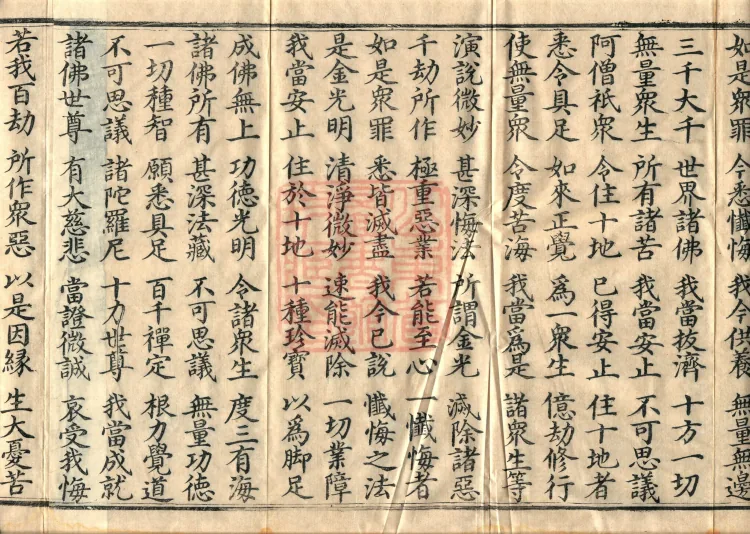 如是衆罪 今悉懺悔 我今供養 無量無邊
三千大千 世界諸佛 我當拔濟 十方一切
無量衆生 所有諸苦 我當安止 不可思議
阿僧祇衆 令住十地 已得安止 住十地者
悉令具足 如來正覺 爲一衆生 億劫修行
使無量衆 令度苦海 我當爲是 諸衆生等
演說微妙 甚深悔法 所謂金光 滅除諸惡
千劫所作 極重惡業 若能至心 一懺悔者
如是衆罪 悉皆滅盡 我今已說 懺悔之法
是金光明 清淨微妙 速能滅除 一切業障
我當安止 住於十地 十種珍寶 以爲脚足
成佛無上 功德光明 令諸衆生 度三有海
諸佛所有 甚深法藏 不可思議 無量功德
一切種智 願悉具足 百千禪定 根力覺道
不可思議 諸陀羅尼 十力世尊 我當成就
諸佛世尊 有大慈悲 當證微誠 哀受我悔
若我百劫 所作衆惡 以是因縁 生大憂苦